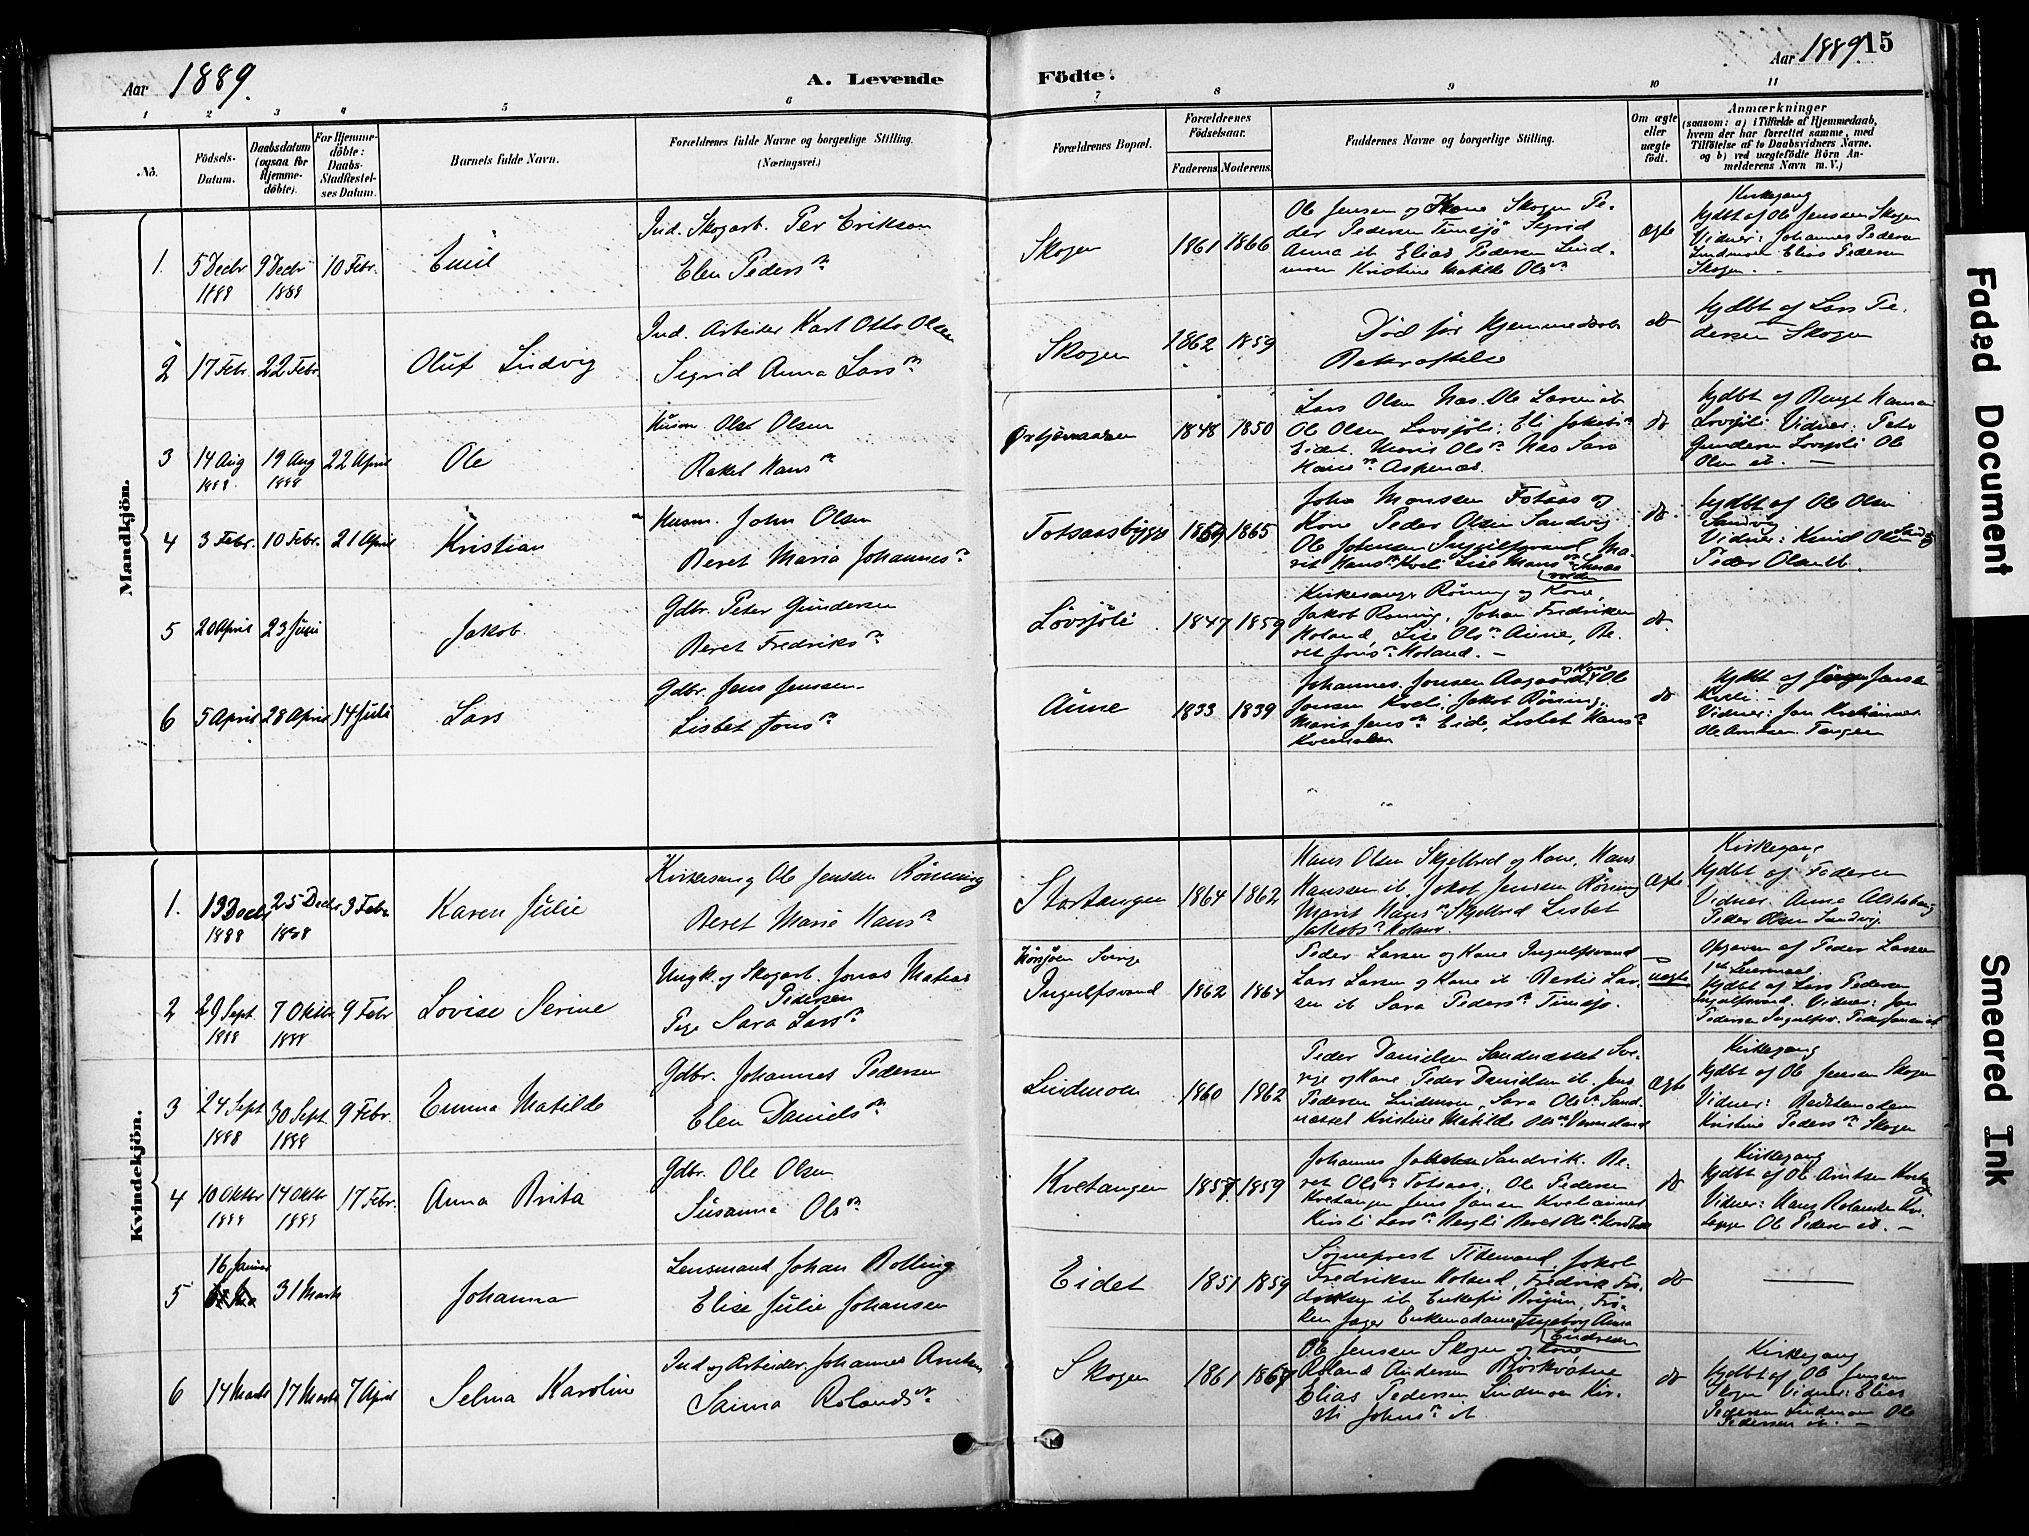 Aar 1889.
A. Levende
Födte.
Aar 1889.
15
1 2 3 4 5 6 7 8 9 10 11
No.
Födsels-Datum.
Daabsdatum (ogsaa for Hjemme-döbte).
For Hjemme-döbte: Daabs-Stadfæstel-ses Datum.
Barnets fulde Navn.
Forældrenes fulde Navne og borgerlige Stilling.
(Næringsvei.)
Forældrenes Bopæl.
Forældrenes Födselsaar.
Faderens. Moderens.
Faddernes Navne og borgerlige Stilling.
Om ægte eller uægte födt.
Anmærkninger
(saasom: a) i Tilfælde af Hjemmedaab,
hvem der har forrettet samme, med
Tilföielse af to Daabsvidners Navne.
og b) ved uægtefödte Börn An-
melderens Navn m. V.)
Mandkjön.
1. 5 Decbr 1888 9 Decbr 1888 10 Febr. Emil
Ind. Skogarb. Per Erikson
Elen Peders
Skogen 1861 1866
Ole Jensen og Kone Skogen Pe-
der Pedersen Tunsjö Sigrid
Anna it Elias Pedersen Lind-
moen Kristine Matilde Ols
Ægte
Kirkegang
hjdbt af Ole Jenssen Skogen
Vidner: Johannes Pedersen
Lindmoen Elias Pedersen
Skogen.
2 17 Febr. 22 Febr. Oluf Ludvig
Ind. Arbeider Karl Otto Olsen
Sigrid Anna Lars
Skogen 1862 1859
Död för Hjemmedaab
Bekræftelse
do
hjdbt af Lars Pe-
dersen Skogen
3 14 Aug 19 Aug 22 April Ole
Husm. Olof Olsen
Rakel Hans
1848 1850
Lars Olsen Nas. Ole Larsen it
Ole Olsen Lovsjöli. Eli Jakobs
Eidet. Marit Ols Nas Sara
Hans Aspenæs.
do
hjdbt af Bengt Hansen
Lovsjöli Vidner: Peter
Gundersen Lovsjöli Ole
Olsen it.
4 3 Febr. 10 Febr. 21 April Kristian
Husm. John Olsen
Beret Maria Johannes
Totsaasbygge 1869 1865
John Monssen Totsaas og
Kone Peder Olsen Sandvig
Ole Johansen Ingulfsvand, Ma-
rit Hans Kveli Lise Mons
do
hjdbt af Ole Olsen
Sandvig
Vidner: Knud Olsen
Peder Olsen it.
5 20 April 23 Juni Jakob.
Gdbr. Peter Gundersen
Beret Fredriks
Lövsjöli 1847 1859
Kirkesanger Röning og Kone,
Jakob Röning, Johan Fredriksen
Noland, Lise Ols Aune, Be-
ret Jons Noland.
do
6 5 April 28 April 14 Juli Lars
Gdbr. Jens Jenssen
Lisbet Jons
Aune 1833 1839
Johannes Jonsen Aagaard og Kone Ole
Jensen Kveli, Jakob Röning,
Marit Jens Eide, Lisbet Hans
do
Kveli
Vidner: Jon
Ole Arntsen Tangen
Kvindekjön.
1. 19 Decbr 1888 25 Decbr 1888 3 Febr. Karen Julie
Kirkesang Ole Jenssen Rönning
Beret Marie Hans
Stortangen 1864 1862
Hans Olsen Skjelbred og Kone, Hans
Hanssen it Jakob Jenssen Röning
Marit Hans Skjelbred Lisbet
Jakobs Noland.
Ægte
Kirkegang
hjdbt af Faderen
Vidner. Anna
Peder Olsen Sandvig.
2 29 Sept. 1888 7 Oktbr 9 Febr Lovise Serine
Ungk. og Skogarb. Jonas Matias
Pedersen
Pige Sara Lars
Sverige
Ingulfsvand 1862 1864
Peder Larsen og Kone Ingulfsvand
Lars Larsen og Kone it Bertil Lar-
sen it Sara Peders Tunsjö.
uægte
Opgaven af Peder Larsen
1ste Leiermaal
hjdbt af Lars Pedersen
Ingulfsvand. Vidner: Jon
Pedersen Ingulfsv.
3 24 Sept 1888 30 Sept. 1888 9 Febr. Emma Matilde
Gdbr. Johannes Pedersen
Elen Daniels
Lindmoen 1860 1862
Peder Danielsen Sandnæsset Sve-
rige og Kone Peder Danielsen it. Jens
Pedersen Lindmoen, Sara Ols Sand-
næsset Kristine Matilde Ols
Ægte
Kirkegang
hjdbt af Ole Jensen Skogen
Vidner: Bedstemoderen
Kristine Peders Skogen
4 10 Oktbr 14 Oktbr 17 Febr. Anna Brita
Gdbr. Ole Olsen
Susanna Ols
Kvetangen 1857 1859
Johannes Sandvik. Be-
ret Ols Totsaas, Ole Pedersen
Kvetangen Jens Jonsen
Kirsti Lars Bergli Beret Ols
do
Kirkegang
hjdbt af Ole Arntsen
Vidner: Hans
Ole Pedersen it.
5 16 Januar 31 Marts Johanna
Lensmand Johan Bolling
Elise Julie Johansen
Eidet 1851 1859
Sogneprest Tidemand, Jakob
Fredriksen Noland, Fredrik Fre-
driksen it Enkefru, Frö-
ken Jager Enkemadame Ingeborg Anna
do
6 14 Marts 17 Marts 7 April Selma Karoline
Ind. og Arbeider. Johannes Arntsen
Saima Rolands
Skogen 1861
Ole Jensen Skogen og Kone
Roland Andersen
Elias Pedersen Lindmoen Kir-
sti Johns it
do
Kirkegang
hjdbt af Ole Jensen
Skogen Vidner: Elias
Pedersen Lindmoen Ole
Pedersen it.
Faded Document
Smeared Ink